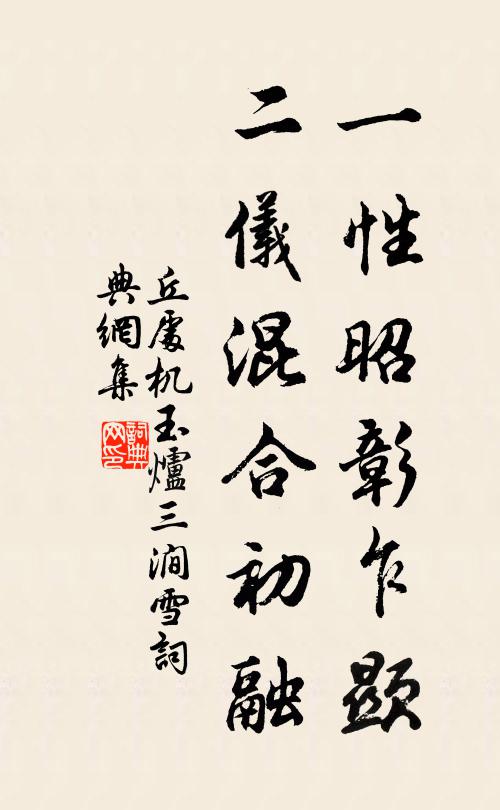 一性昭彰乍顯
二儀混合初融
丘處机玉爐三澗雪詞
典網集
詞典
网印